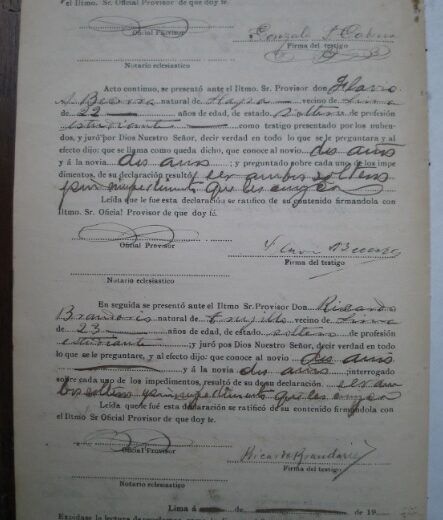 el Iltmo. Sr. Oficial Provisor de que doy fé.
Oficial Provisor
Gonzalo
Firma del testigo
Notario eclesiastico
Acto continuo, se presentó ante el Iltmo. Sr. Provisor don Flavio
A Becerra natural de vecino de Lima
de 22 años de edad, de estado soltero de profesión
estudiante como testigo presentado por los nuben-
dos, y juró por Dios Nuestro Señor, decir verdad en todo lo que se le preguntara y al
efecto dijo: que se llama como queda dicho, que conoce al novio dos años
y á la novia dos años ; y preguntado sobre cada uno de los impe
dimentos, de su declaración resultó ser ambos solteros
sin impedimento que les
Leída que le fué esta declaración se ratificó de su contenido firmandola con
el Iltmo. Sr. Oficial Provisor de que doy fé.
Oficial Provisor
Flavio Becerra
Firma del testigo
Notario eclesiastico
En seguida se presentó ante el Iltmo Sr. Provisor Don Ricardo
natural de Trujillo vecino de Lima
de 23 años de edad, de estado soltero de profesión
estudiante ; y juró pos Dios Nuestro Señor, decir verdad en todo
lo que se le preguntare, y al efecto dijo: que conoce al novio dos años
y á la novia dos años ; interrogado
sobre cada uno de los impedimentos, resultó de su declaración
solteros sin impedimento que les
Leída que le fué esta declaración se ratificó de su contenido firmandola con
el Iltmo Sr. Oficial Provisor de que doy fé.
Oficial Provisor
Ricardo
Firma del testigo
Notario eclesiastico
Lima á de de 19